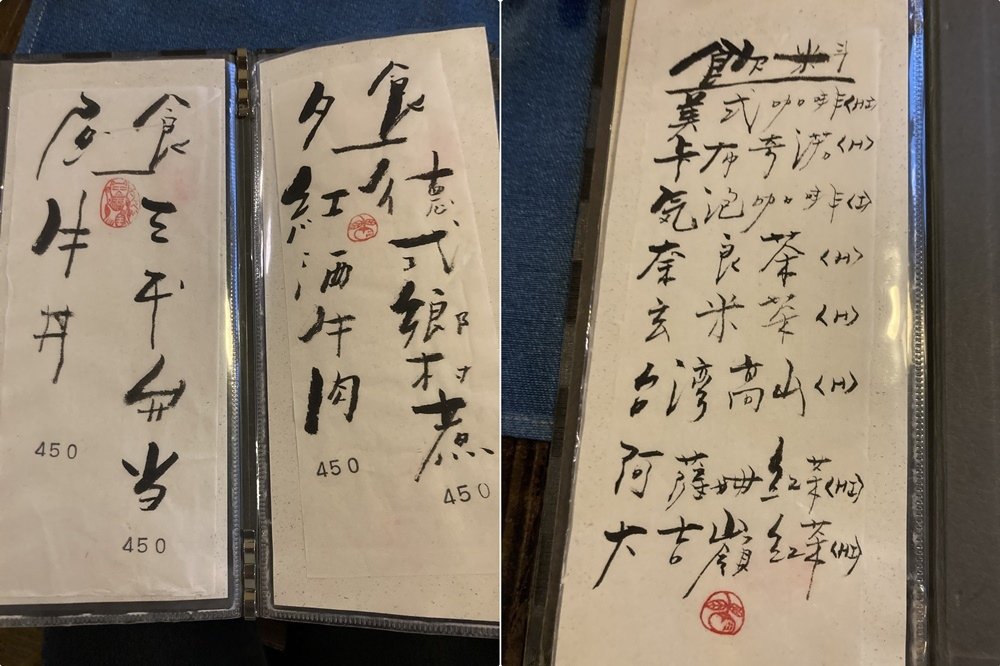 昼食
弁当
450
牛丼
450
夕食
德式鄉村煮
450
紅酒牛肉
450
飲料
美式咖啡<HI>
卡布奇諾<H>
気泡咖啡<I>
奈良茶<H>
玄米茶<H>
台湾高山<H>
阿薩姆紅茶<HI>
大吉嶺紅茶<HI>